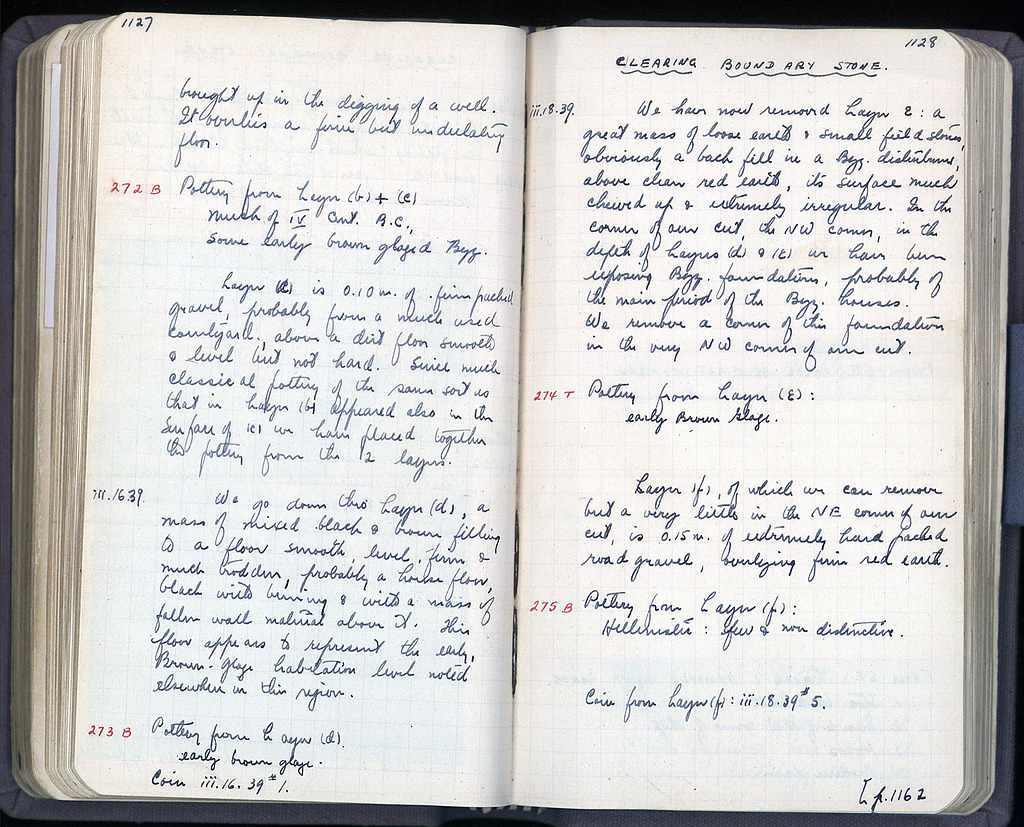 1127
brought up in the digging of a well.
It overlies a firm but undulating
floor.
272 B Pottery from Layer (b) + (c)
much of IV Cent. B.C.,
some early brown glazed Byz.
Layer (c) is 0.10 m. of firm packed
gravel, probably from a much used
courtyard, above a dirt floor smooth
& level but not hard. Since much
classical pottery of the same sort as
that in Layer (b) appeared also in the
surface of (c) we have placed together
the pottery from the 2 layers.
iii.16.39. We go down thro Layer (d), a
mass of mixed black & brown filling
to a floor smooth, level, firm &
much trodden, probably a house floor,
black with burning & with a mass of
fallen wall material above it. This
floor appears to represent the early,
Brown-Glaze habitation level noted
elsewhere in this region.
273 B Pottery from Layer (d).
early brown glaze.
Coin iii.16.39 # 1.
1128
CLEARING BOUNDARY STONE.
iii.18.39. We have now removed Layer E: a
great mass of loose earth & small field stones,
obviously a back fill in a Byz. disturbance,
above clean red earth, its surface much
chewed up & extremely irregular. In the
corner of our cut, the NW corner, in the
depth of Layers (d) & (E) we have been
exposing Byz. foundations, probably of
the main period of the Byz. houses.
We remove a corner of this foundation
in the very NW corner of our cut.
274 T Pottery from Layer (E):
early Brown Glaze.
Layer (f), of which we can remove
but a very little in the NE corner of our
cut, is 0.15 m. of extremely hard packed
road gravel, overlying firm red earth.
275 B Pottery from Layer (f):
Hellenistic: few & non distinctive.
Coin from Layer (f): iii.18.39 # 5.
p. 1162